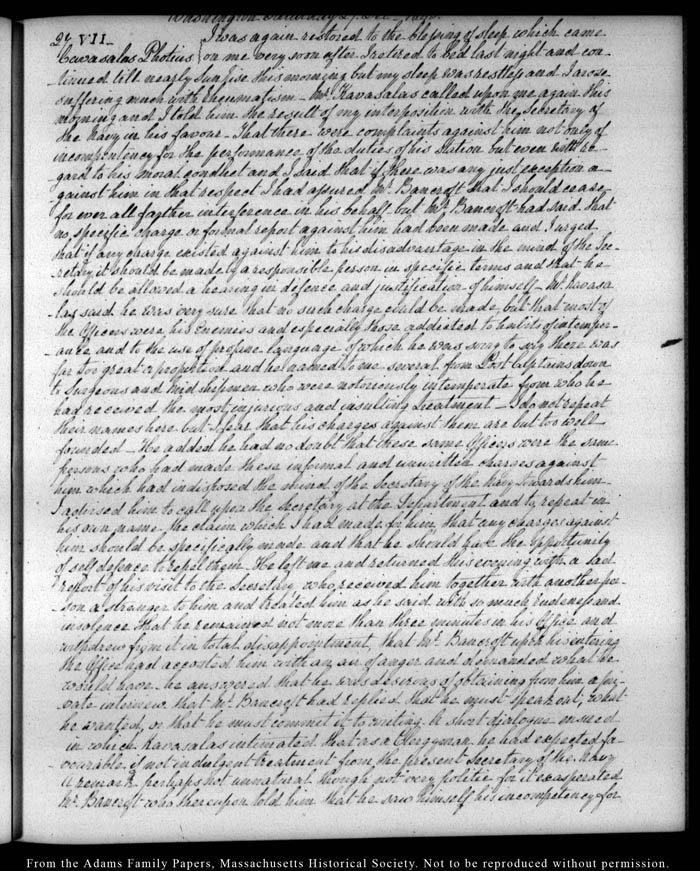 Washington Saturday 27. Dec
27. VII. I was again restored to the blessing of sleep which came
Cavasalas Photius on me very soon after I retired to bed last night and con-
tinued till nearly Sunrise this morning but my sleep was restless and I arose
suffering much with rheumatism - Mr. Kavasalas called upon me again this
morning and I told him the result of my interposition with the Secretary of
the Navy in his favour - That there were complaints against him not only of
incompetency for the performance of the duties of his Station but even with re-
gard to his moral conduct and I said that if there was any just exception a-
gainst him in that respect I had assured Mr. Bancroft that I should cease
for ever all farther interference in his behalf - but Mr. Bancroft had said that
no specific charge or formal report against him had been made and I urged
that if any charge existed against him to his disadvantage in the mind of the Sec-
retary, it should be made by a responsible person in specific terms and that he
should be allowed a hearing in defence and justification of himself - Mr. Kavasa-
las said he was very sure that no such charge could be made, but that most of
the Officers were his enemies and especially those addicted to habits of intemper-
ance and to the use of profane language of which he was sorry to say there was
far too great a proportion and he named to me several from Post Captains down
to Surgeons and Midshipmen who were notoriously intemperate from who he
had received the most injurious and insulting treatment - I do not repeat
their names here but I fear that his charges against them are but too well
founded - He added he had no doubt that these same Officers were the same
persons who had made these informal and unwritten charges against
him which had indisposed the mind of the Secretary of the Navy towards him
I advised him to call upon the Secretary at the Department and to repeat in
his own name the claim which I had made for him, that any charges against
him should be specifically made and that he should have the opportunity
of self defence to repel them - He left me and returned this evening with a sad
report of his visit to the Secretary, who received him together with another per-
son a stranger to him and treated him as he said with so much rudeness and
insolence that he remained not more than three minutes in his Office and
withdrew from it in total disappointment, that Mr. Bancroft upon his entering
the Office had accosted him with an air of anger and demanded what he
would have - he answered that he was desirous of obtaining from him a pri-
vate interview that Mr. Bancroft had replied that he must speak out, what
he wanted, or that he must commit it to writing. A short dialogue ensued
in which Kavasalas intimated that as a Clergyman he had expected fa-
vourable if not indulgent treatment from the present Secretary of the Navy
A remark perhaps not unnatural though not very politic for it exasperated
Mr. Bancroft who thereupon told him that he saw himself his incompetency for
From the Adams Family Papers, Massachusetts Historical Society. Not to be reproduced without permission.